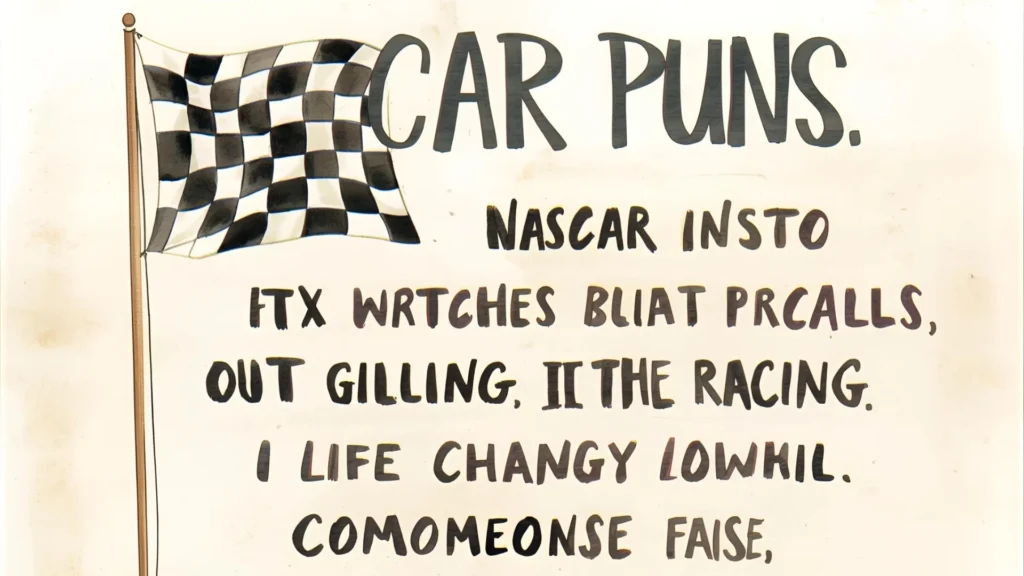 CAR PUNS.
NASCAR INSTO
ITX WRTCHES BLIAT PRCALLS,
OUT GILLING, II THE RACING.
I LIFE CHANGY LOWHIL.
COMOMEONSE FAISE,